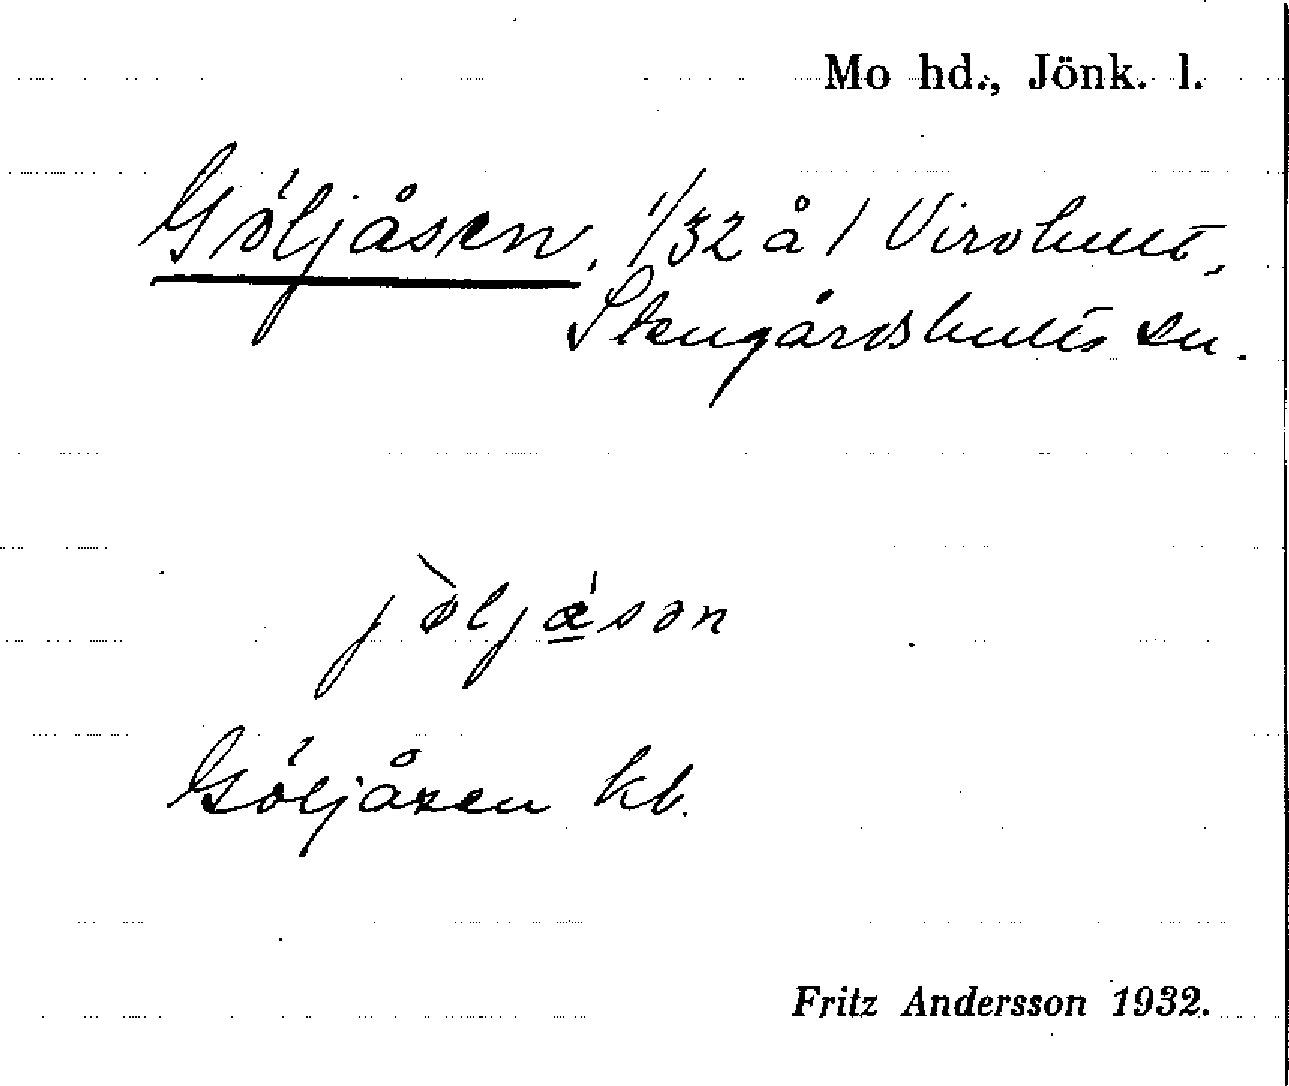 Mo hd., Jönk. l.
Göljåsen, 1/32 å 1 Virohult,
Stengårdshults sn.
jòljásən
Göljåsen kb.
Fritz Andersson 1932.